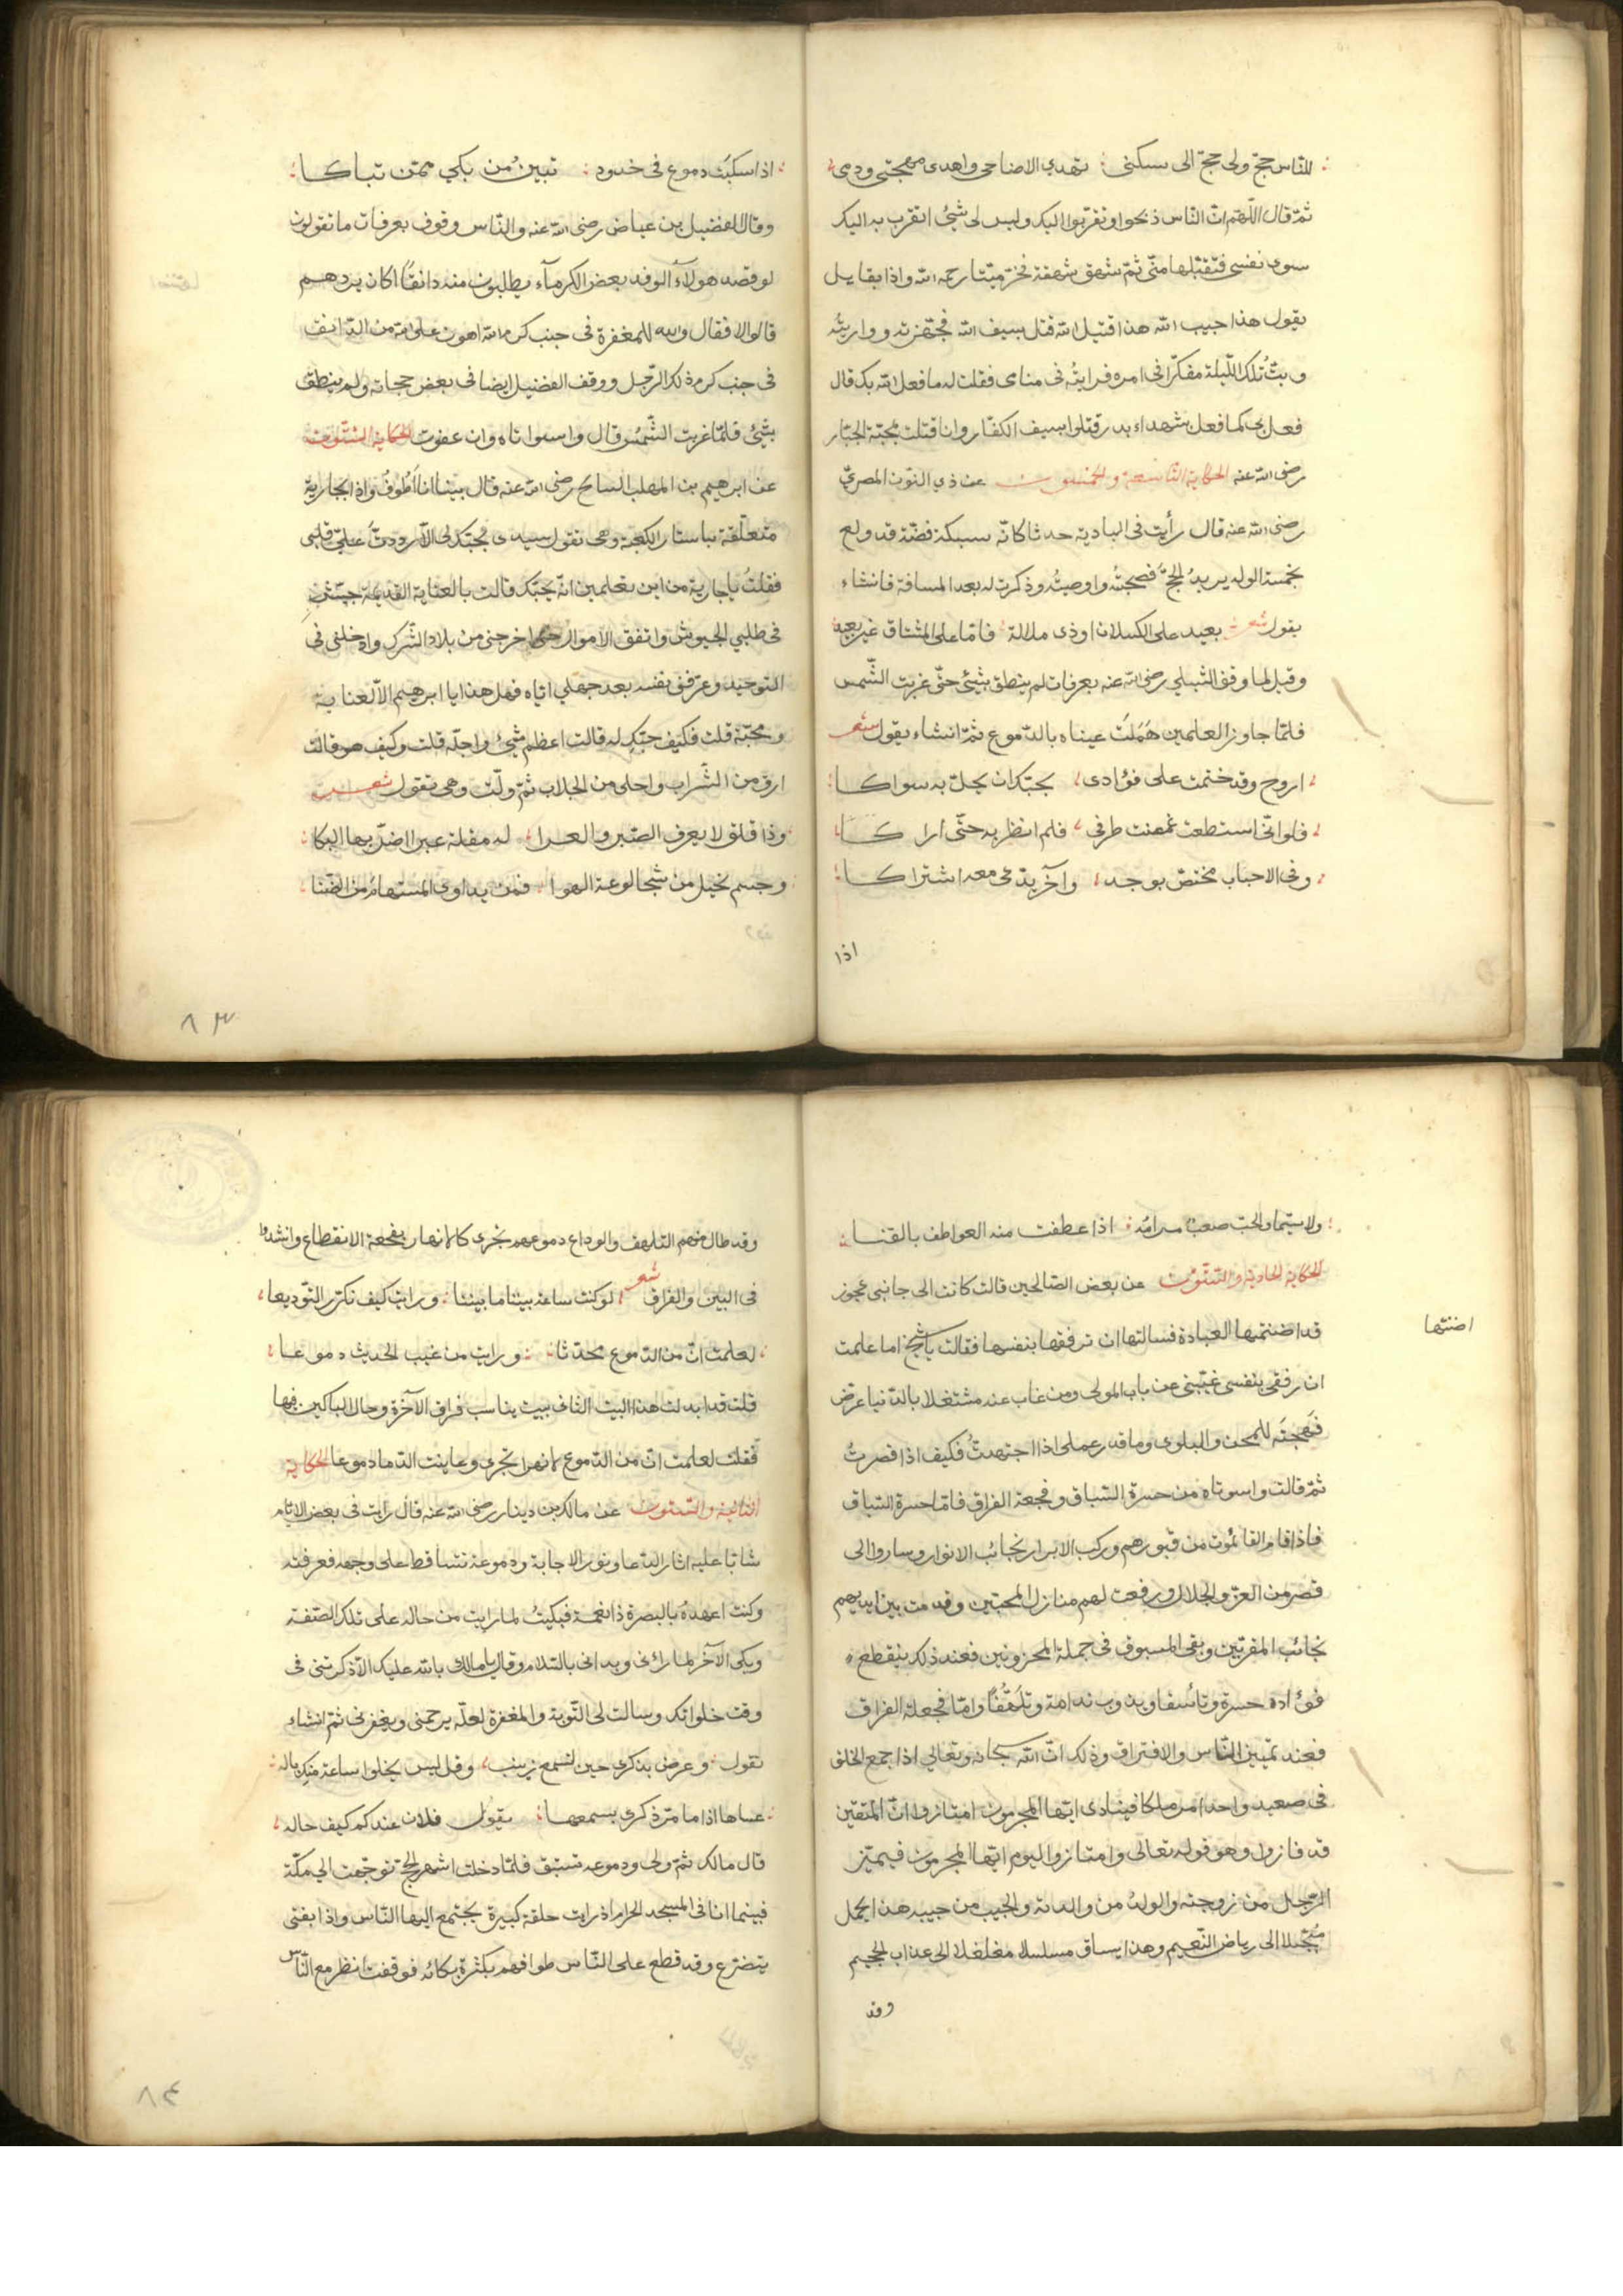 للناس حجّ ولى حجّ الى سكنى تهدى الاضاحى واهدى مهجتى ودمى
ثمّ قال اللّهمّ انّ النّاس ذبحوا وتقرّبوا اليك وليس لى شئ اتقرب به اليك
سوى نفسى فتقبّلها منّى ثمّ شهق شهقة فخرّ ميّتا رحمه الله واذا بقايل
يقول هذا حبيب الله هذا قتيل الله قتل بسيف الله فجهّزته وواريته
وبتّ تلك اللّيلة مفكّرا فى امره فرايتُه فى منامى فقلت له ما فعل الله بك قال
فعل بى كما فعل بشهداء بدر قتلوا بسيف الكفّار وانا قتلت بمحبّة الجبّار
رضى الله عنه الحكاية التاسعة والخمسون عن ذي النّون المصريّ
رضى الله عنه قال رأيت فى البادية حدثا كانّه سبيكة فضّة قد ولع
بخمسة الوله يريدُ الحجّ فصحبتُه واوصيتُه وذكرت له بعد المسافة فانشاء
يقول شعر بعيد على الكسلان او ذى ملالة فامّا على المشتاق غير بعيد
وقيل لما وقف الشبلي رضى الله عنه بعرفات لم ينطق بشئ حتّى غربت الشّمس
فلمّا جاوز العلمين هَمَلَت عيناه بالدّموع ثمّ انشاء يقول شعر
اروح وقد ختمت على فؤادى بحبّك ان يحلّ به سواكا
فلو انّى استطعت غمضت طرفى فلم انظر به حتّى اراكا
وفى الاحباب مختصّ بوجد وآخر يدّعى معه اشتراكا
اذا
اذا سكبَت دموع فى خدود تبين من بكي ممّن تباكا
وقال الفضيل بن عياض رضى الله عنه والنّاس وقوف بعرفات ما تقولون
لو قصد هولاء الوفد بعض الكرماء يطلبون منه دانقًا اكان يردهم
قالوا لا فقال والله للمغفرة فى جنب كرم الله اهون على الله من الدّانق
فى جنب كرم ذلك الرّجل ووقف الفضيل ايضا فى بعض حجّاته ولم ينطق
بشئ فلمّا غربت الشّمس قال واسواتاه وان عفوت الحكاية الستّون
عن ابرهيم بن المهلب السائح رضى الله عنه قال بينا انا اَطُوفُ واذا بجارية
متعلّقة باستار الكعبة وهى تقول سيدى بحبّك لى الاّ رددتَ علىّ قلبى
فقلتُ يا جارية من اين تعلمين انّه يحبّك قالت بالعناية القديمة جيّش
فى طلبي الجيوش وانفق الاموال حتى اخرجنى من بلاد الشّرك وادخلنى فى
التوحيد وعرّفنى نفسه بعد جهلي ايّاه فهل هذا يا ابرهيم الاّ لعناية
ومحبّة قلت فكيف حبّكِ له قالت اعظم شئ واجلّه قلت وكيف هو قالت
ارق من الشّراب واحلى من الجلاب ثمّ ولّت وهى تقول شعر
وذا قلق لا يعرف الصّبر والعزا له مقلة عبرا اضرّ بها البكا
وجسم نحيل من شجا لوعة الهوا فمن يداوى المستهام من الضّنا
٨٣
ولا سيّما والحبّ صعبٌ مرامُه اذا عطفت منه العواطف بالقنا
الحكاية الحادية والستّون عن بعض الصّالحين قالت كانت الى جانبى عجوز
اضنتها
قد اضنتها العبادة فسالتها ان ترفقها بنفسها فقالت يا شيخ اما علمت
ان رفقى بنفسى غيّبنى عن باب المولى ومن غاب عنه مشتغلا بالدّنيا عرّض
مهجتَه للمحن والبلوى وما قدر عملى اذا اجتهدتُ فكيف اذا قصرتُ
ثمّ قالت واسوتاه من حسرة السّباق وفجعة الفراق فامّا حسرة السّباق
فاذا قام القائمُون من قبورهم وركب الابرار نجائب الانوار وساروا الى
قصر من العزّ والجلال ورفعت لهم منازل المحبّين وقدمت بين ايديهم
نجائب المقرّبين وبقى المسبوق فى جملة المحزونين فعند ذلك ينقطع
فؤاده حسرة وتاسُفا ويذوب ندامة وتلهّفًا وامّا فجعلة الفراق
فعند تمييز النّاس والافتراق وذلك انّ الله سبحانه وتعالى اذا جمع الخلق
فى صعيد واحد امر ملكا فينادى ايّها المجرمون امتازوا انّ المتّقين
قد فازوا وهو قوله تعالى وامتازوا اليوم ايّها المجرمون فيميّز
الرّجل من زوجته والولدُ من والدته والحبيب من حبيبه هذا يحمل
مبجّلا الى رياض النّعيم وهذا يساق مسلسلا مغلغلا الى عذاب الجحيم
وقد
وقد طال منهم التلهف والوداع دموعهم تجرى كالانهار بفجعة الانقطاع وانشدوا
فى البين والفراق شعر لو كنت ساعة بيننا ما بيننا ورايت كيف نكرّر التّوديعا
لعلمت انّ من الدّموع محدّثا ورايت من غيب الحديث دموعا
قلت قد ابدلت هذا البيت الثانى ببيت يناسب فراق الآخرة وحال الباكين فيها
فقلت لعلمت انّ من الدّموع لانهرا تجرى وعاينت الدّما دموعا الحكاية
الثانية والستّون عن مالك بن دينار رضى الله عنه قال رايت فى بعض الايّام
شابّا عليه اثار الدّعا ونور الاجابة ودموعه تتساقط على وجهه فعرفته
وكنت اعهدهُ بالبصرة ذا نعمة فبكيتُ لما رايت من حاله على تلك الصّفة
وبكى الآخر لما رانى وبدانى بالسّلام وقال يا مالك بالله عليك الاّ ذكرتنى فى
وقت خلواتك وسالت لى التّوبة والمغفرة لعلّه يرحمنى ويغفر لى ثمّ انشاء
يقول وعرض بذكرى حين تسمع زينب وقل ليس يخلوا ساعة منك باله
عساها اذا ما مرّ ذكرى بسمعها يقول فلان عندكم كيف حاله
قال مالك ثمّ ولى ودموعه تستبق فلمّا دخلت اشهر الحجّ توجّهت الي مكّة
فبينما انا فى المسجد الحرام اذ رايت حلقة كبيرة يجتمع اليها النّاس واذا بفتى
يتضرّع وقد قطع على النّاس طوافهم بكثرة بكائه فوقفت انظر مع النّاس
٨٤